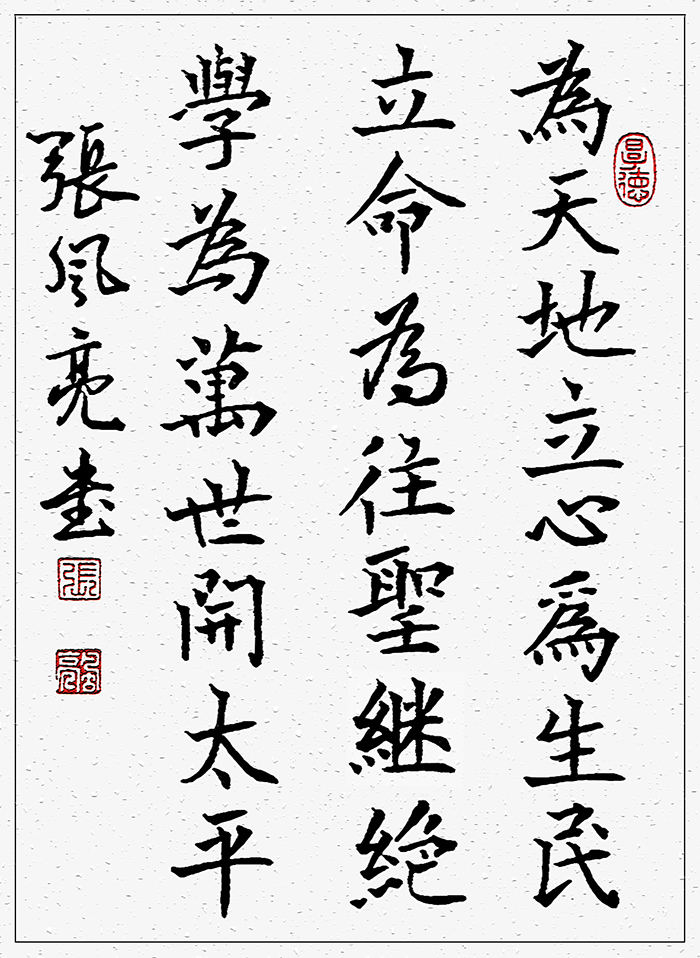 為天地立心爲生民
立命為往聖継絶
學為萬世開太平
張風亮書
張